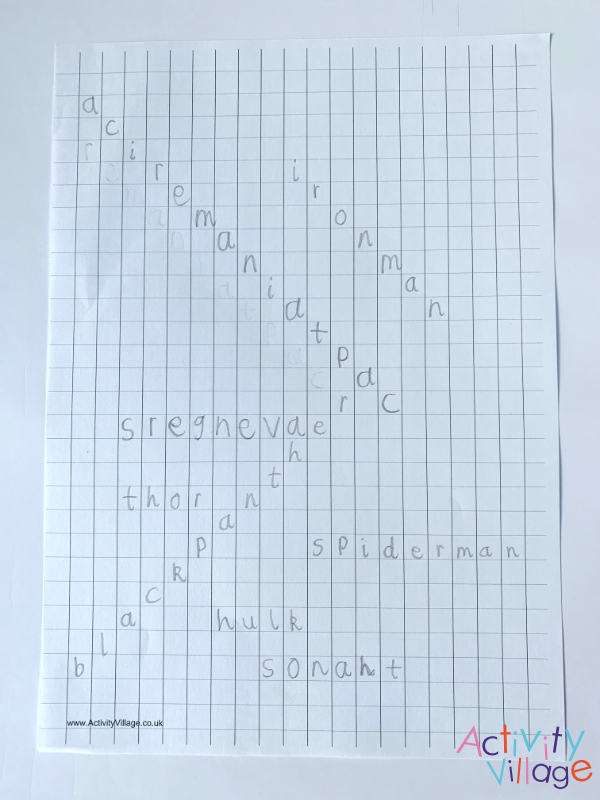 aciremaniatpac
ironman
sregneva
blackpanther
thor
spiderman
hulk
sonaht
www.ActivityVillage.co.uk
Activity
Village